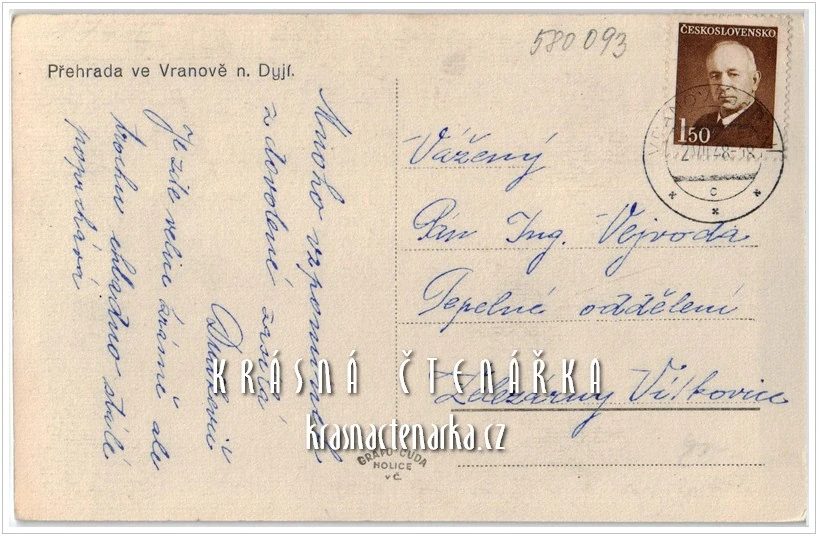 580093
ČESKOSLOVENSKO
1 50
Přehrada ve Vranově n. Dyjí.
Mnoho vzpomínek
z dovolené zasílá
Je zde velice krásně ale
trochu chladno stále
poprchává
Vážený
Pán Ing. Vejvoda
Tepelné oddělení
Železárny Vítkovice
KRÁSNÁ ČTENÁŘKA
krasnactenarka.cz
GRAFO-ČUDA
HOLICE
v Č.